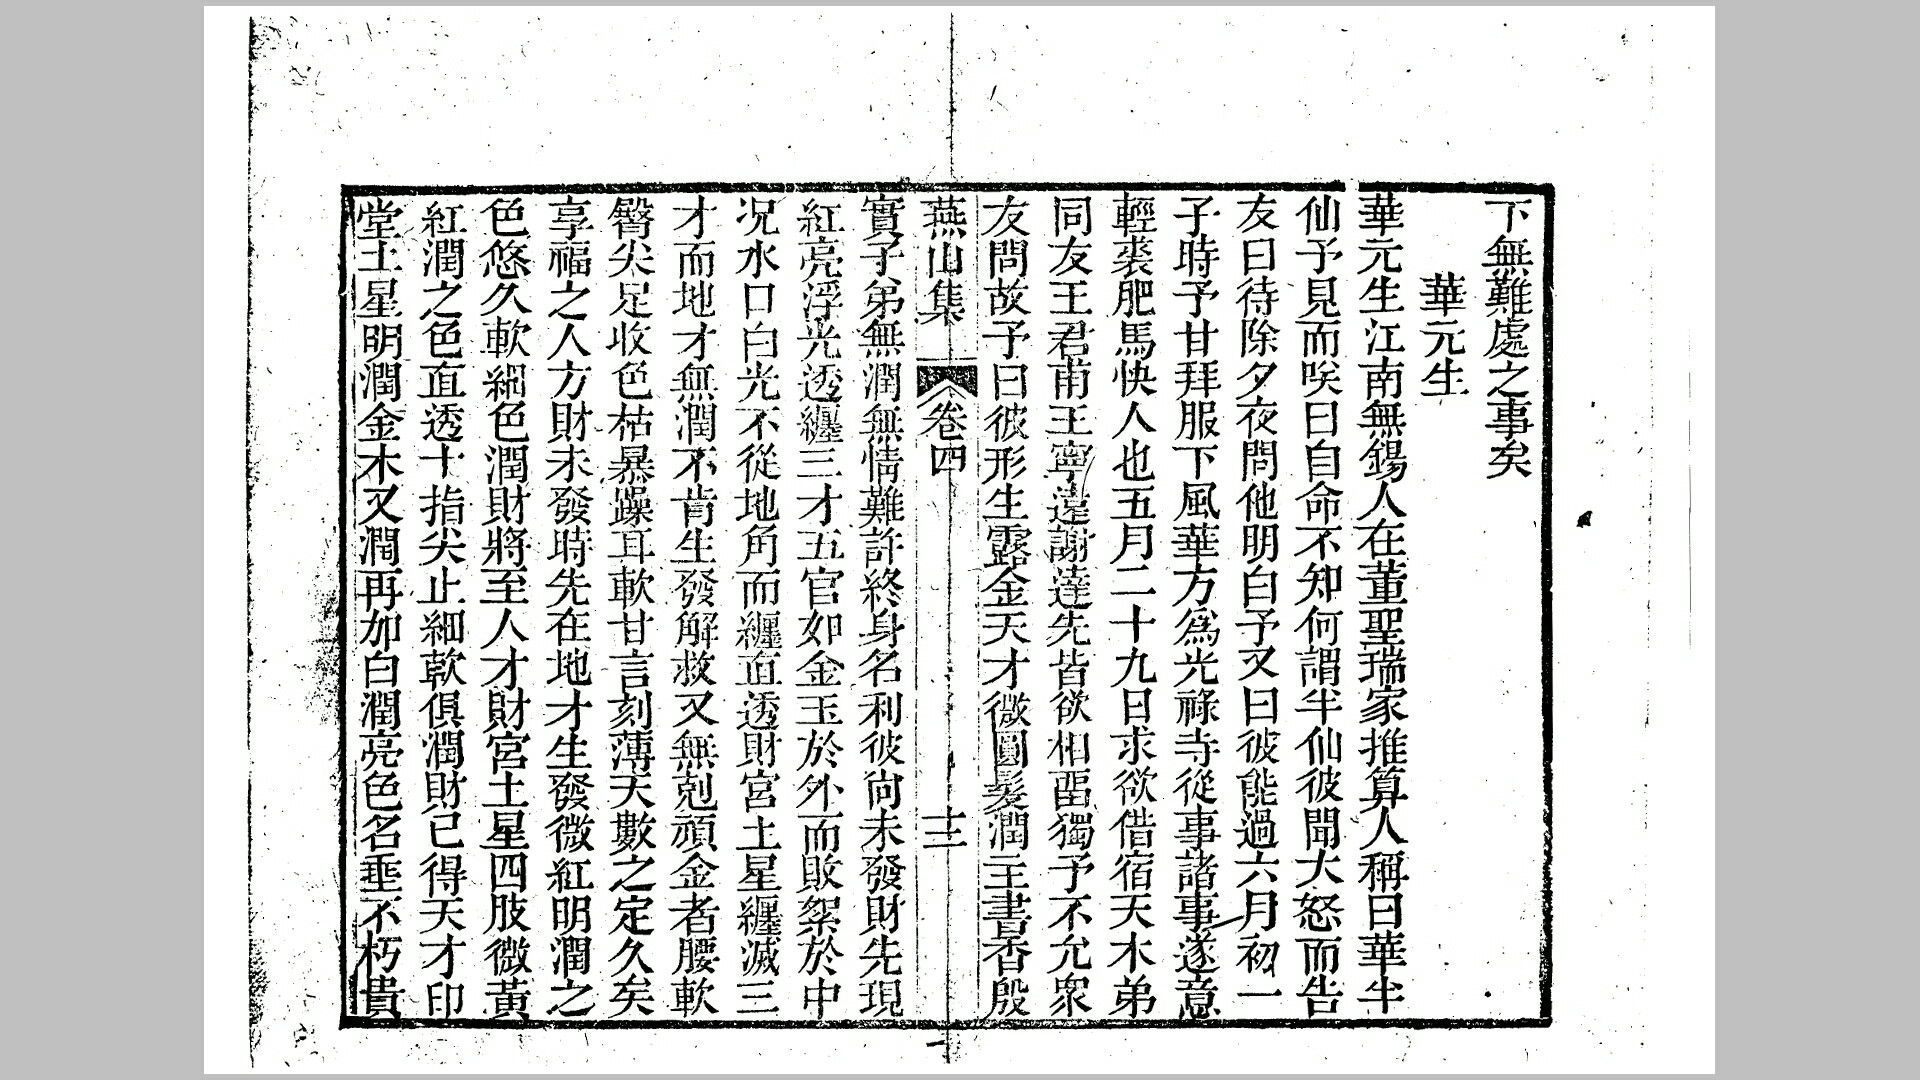 下無難處之事矣
華元生
華元生江南無錫人在董聖瑞家推算人稱曰華半
仙予見而咲曰自命不知何謂半仙彼聞大怒而告
友曰待除夕夜問他明白予又曰彼能過六月初一
子時予甘拜服下風華方為光祿寺從事諸事遂意
輕裘肥馬快人也五月二十九日求欲借宿天木弟
同友王君甫王寧遠謝達先皆欲相畱獨予不允衆
友問故予曰彼形生露金天才微圓髮潤主書香殷
燕山集 卷四 十三
實子弟無潤無情難許終身名利彼尙未發財先現
紅亮浮光透纏三才五官如金玉於外而敗絮於中
况水口白光不從地角而纏直透財宮土星纏滅三
才而地才無潤不肯生發解救又無剋頑金者腰軟
臀尖足收色枯暴躁耳軟甘言刻薄天數之定久矣
享福之人方財未發時先在地才生發微紅明潤之
色悠久軟綢色潤財將至人才財宮土星四肢微黃
紅潤之色直透十指尖止細軟俱潤財已得天才印
堂土星明潤金木又潤再加白潤亮色名垂不朽貴